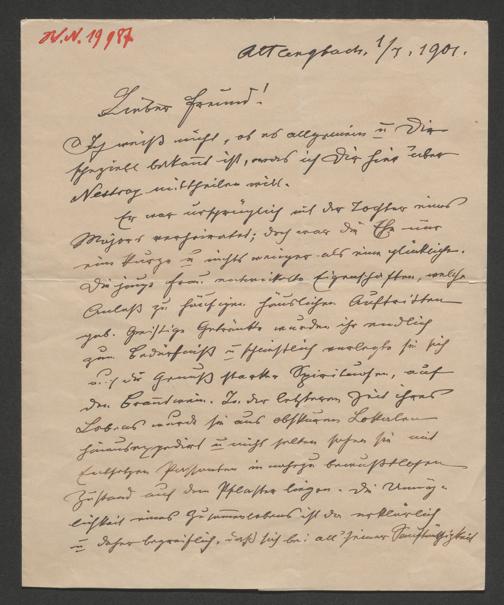 H.N. 19987
Altlengbach, 1/7. 1901.
Lieber Freund!
Ich weiß nicht, ob es allgemein u Dir
speziell bekannt ist, was ich Dir hier über
Nestroy mittheilen will.
Er war ursprünglich mit der Tochter eines
Majors verheiratet; doch war die Ehe nur
eine kurze u nichts weniger als eine glückliche.
Die junge Frau entwickelte Eigenschaften, welche
Anlaß zu häufigen häuslichen Auftritten
gab. Geistige Getränke wurden ihr endlich
zum Bedürfniß u schließlich verlegte sie sich
auf den Genuß starker Spirituosen, auf
den Branntwein. In der letzteren Zeit ihres
Lebens wurde sie aus obskuren Lokalen
hinausexpedirt u nicht selten sahen sie mit
Entsetzen Passanten in nahezu bewußtlosem
Zustand auf dem Pflaster liegen. Die Unmög-
lichkeit eines Zusammenlebens ist da erklärlich
u daher begreiflich, daß sich bei all' seiner Sanftmüthigkeit